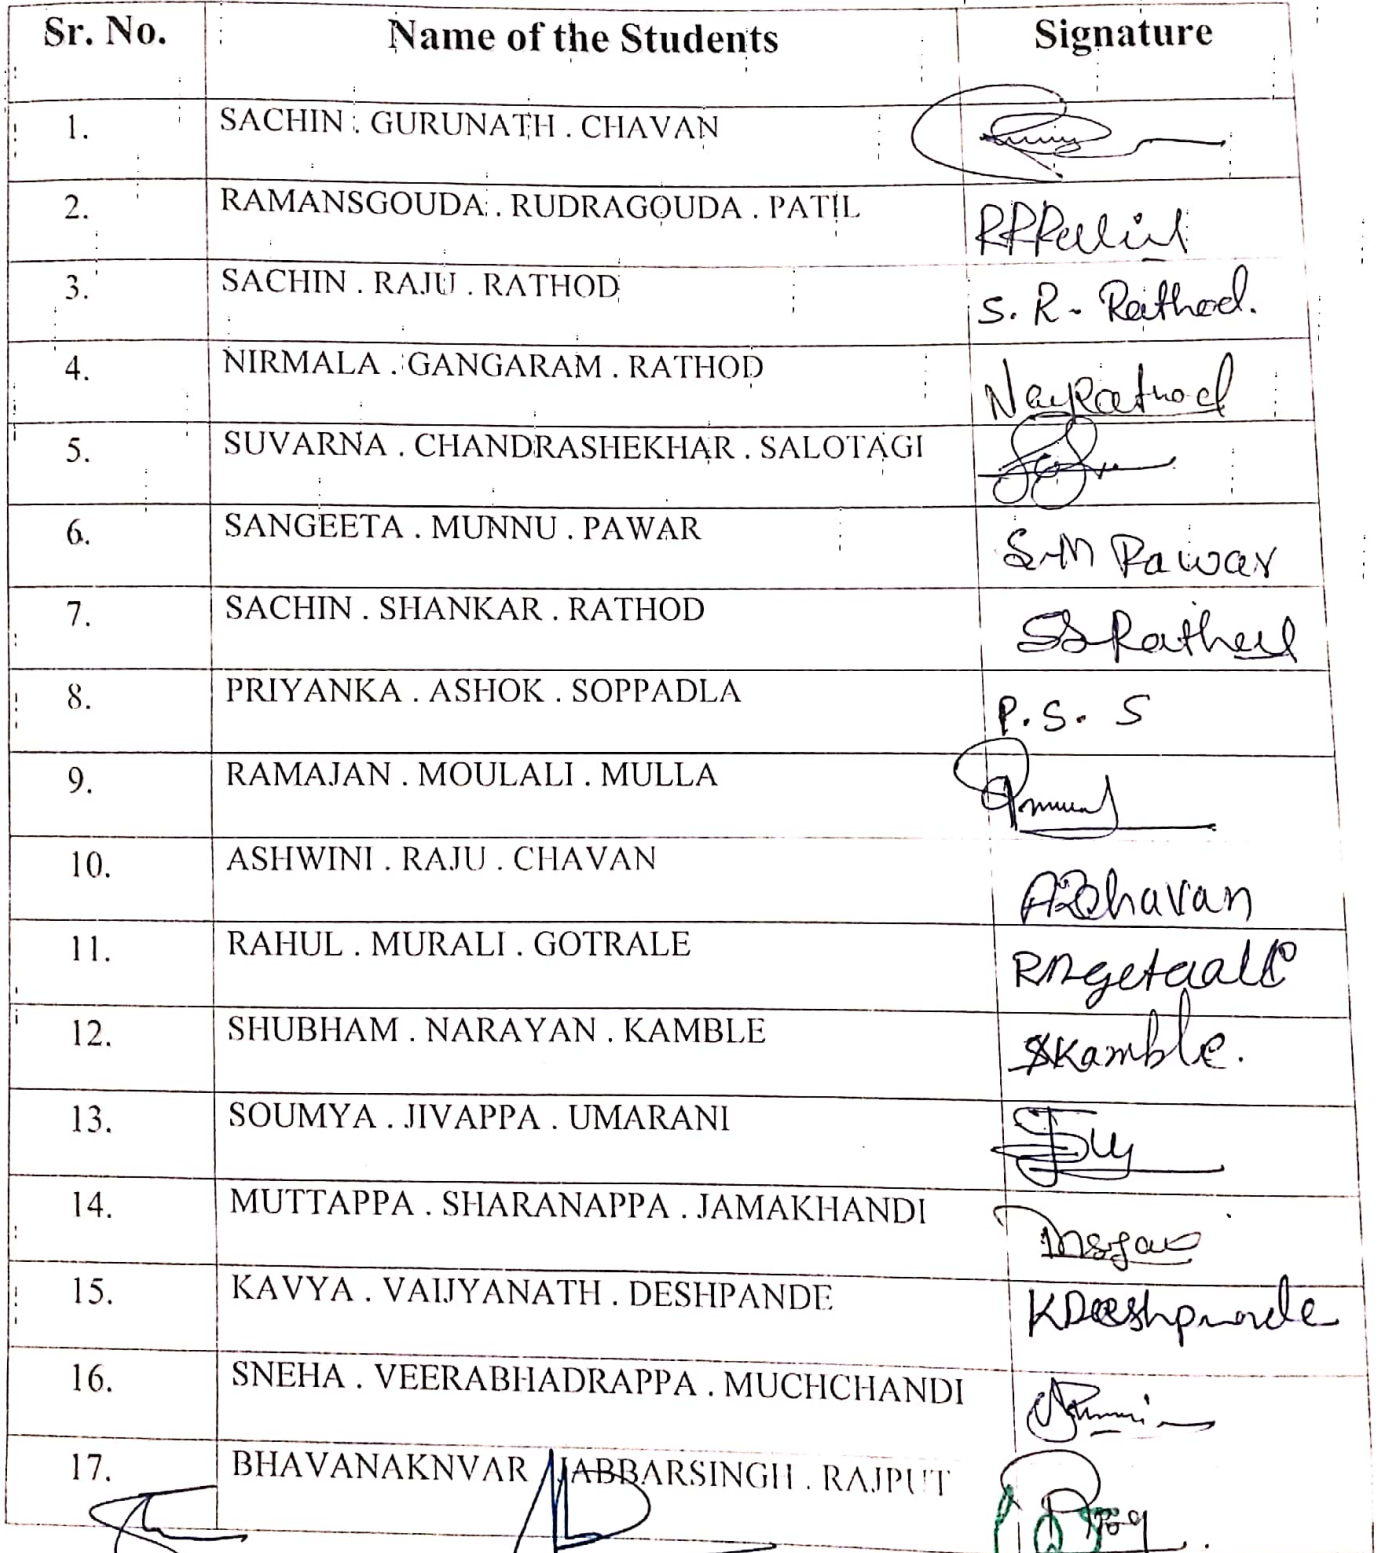 Sr. No. Name of the Students Signature
1. SACHIN . GURUNATH . CHAVAN
2. RAMANSGOUDA . RUDRAGOUDA . PATIL RRPatil
3. SACHIN . RAJU . RATHOD S. R. Rathod.
4. NIRMALA . GANGARAM . RATHOD Rathod
5. SUVARNA . CHANDRASHEKHAR . SALOTAGI
6. SANGEETA . MUNNU . PAWAR S.M Pawar
7. SACHIN . SHANKAR . RATHOD SSRathod
8. PRIYANKA . ASHOK . SOPPADLA P. S. S
9. RAMAJAN . MOULALI . MULLA
10. ASHWINI . RAJU . CHAVAN ARChavan
11. RAHUL . MURALI . GOTRALE
12. SHUBHAM . NARAYAN . KAMBLE SKamble.
13. SOUMYA . JIVAPPA . UMARANI
14. MUTTAPPA . SHARANAPPA . JAMAKHANDI
15. KAVYA . VAIJYANATH . DESHPANDE KDeshpande
16. SNEHA . VEERABHADRAPPA . MUCHCHANDI
17. BHAVANAKNVAR . JABBARSINGH . RAJPUT